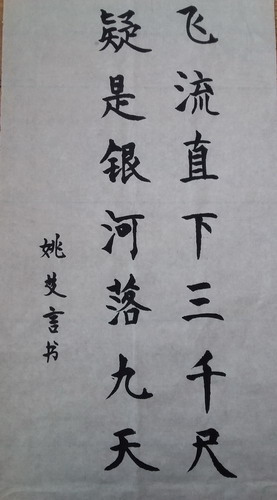 飞流直下三千尺
疑是银河落九天
姚芟言书